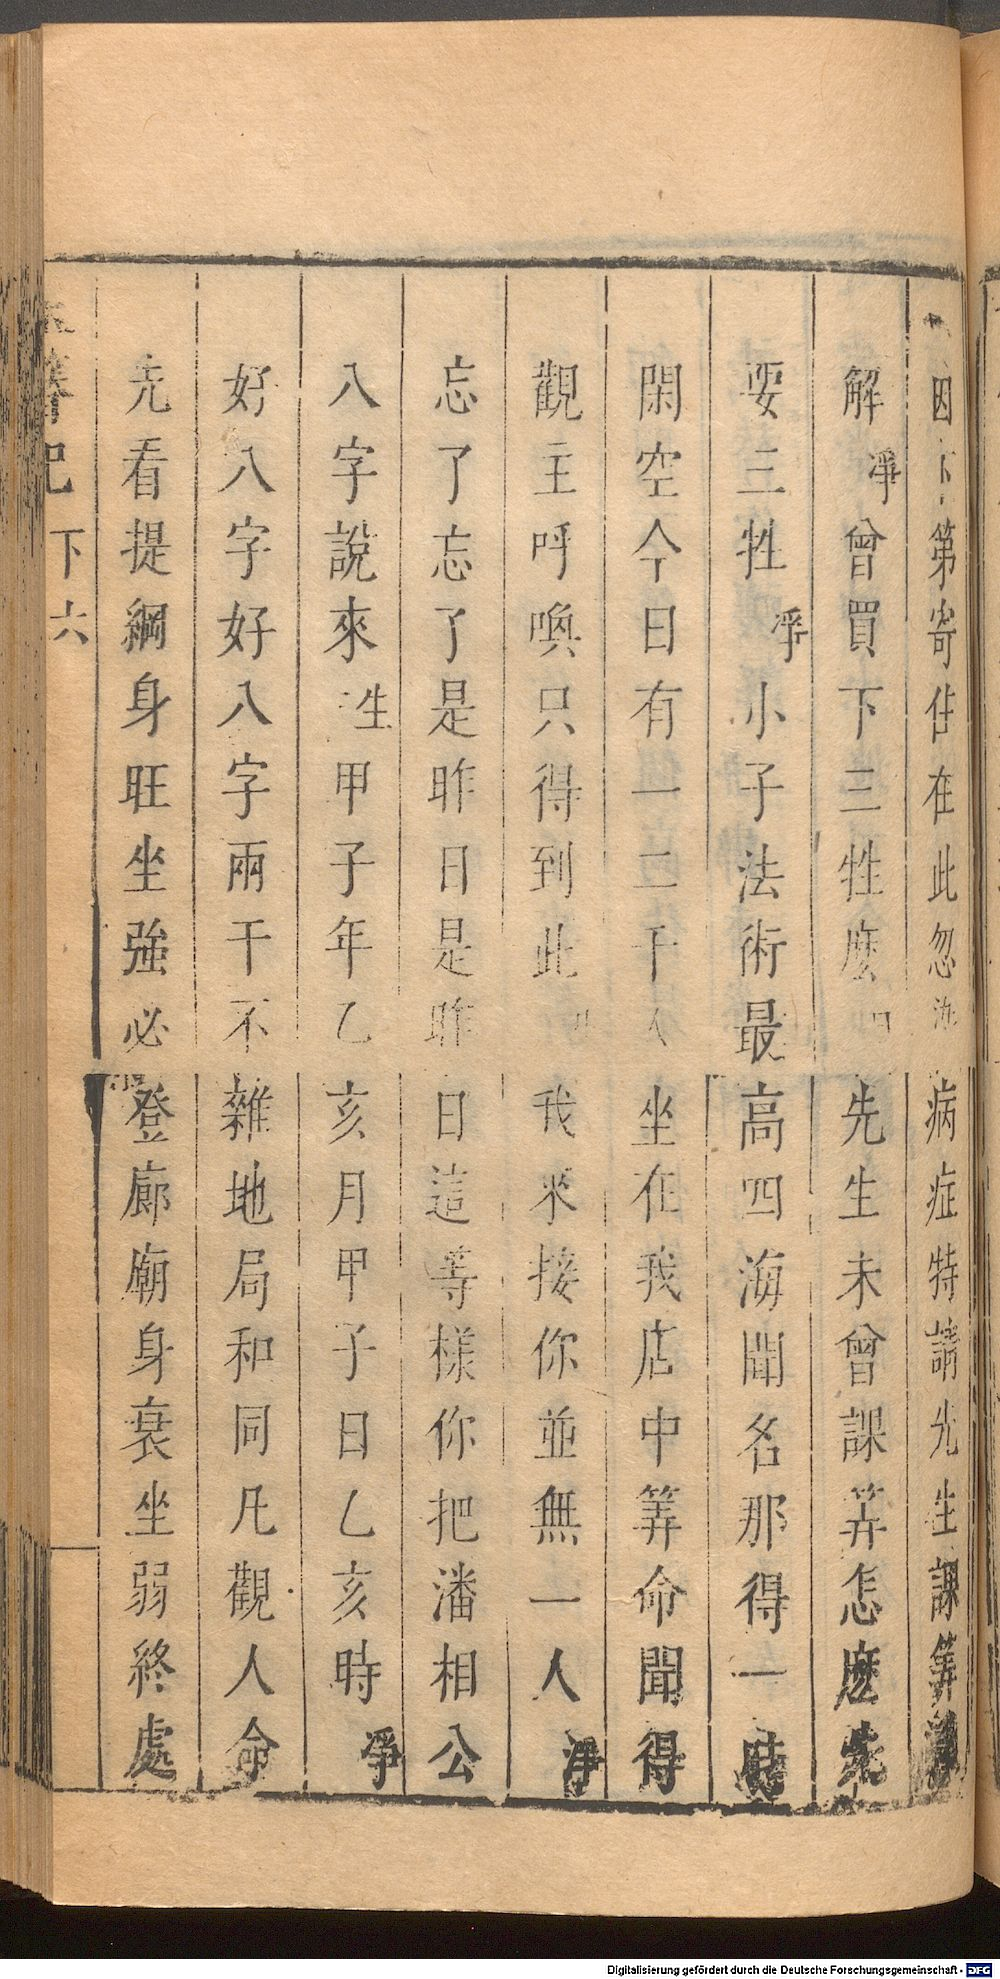 因下第寄住在此忽染病症特請先生課筭
解淨曾買下三牲麽丑先生未曾課筭怎麽先
要三牲淨小子法術最高四海聞名那得一時
閑空今日有一二千人坐在我店中筭命聞得
觀主呼喚只得到此丑我來接你並無一人淨
忘了忘了是昨日是昨日這等樣你把潘相公
八字說來生甲子年乙亥月甲子日乙亥時淨
好八字好八字兩干不雜地局和同凡觀人命
先看提綱身旺坐強必登廊廟身衰坐弱終處
玉簪記 下 六
Digitalisierung gefördert durch die Deutsche Forschungsgemeinschaft - DFG